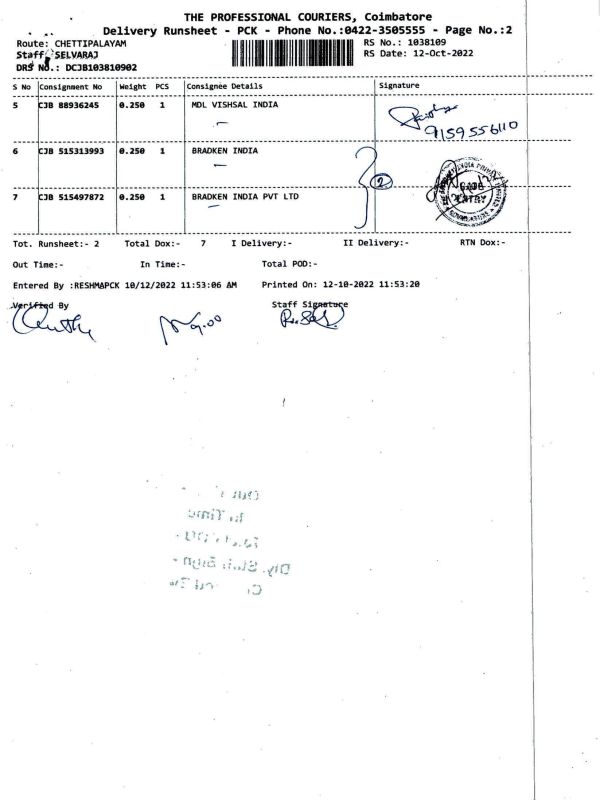 THE PROFESSIONAL COURIERS, Coimbatore
Delivery Runsheet - PCK - Phone No.:0422-3505555 - Page No.:2
Route: CHETTIPALAYAM RS No.: 1038109
Staff: SELVARAJ RS Date: 12-Oct-2022
DRS No.: DCJB103810902
S No Consignment No Weight PCS Consignee Details Signature
5 CJB 88936245 0.250 1 MDL VISHSAL INDIA
9159556110
6 CJB 515313993 0.250 1 BRADKEN INDIA
2
GATE
ENTRY
7 CJB 515497872 0.250 1 BRADKEN INDIA PVT LTD
Tot. Runsheet:- 2 Total Dox:- 7 I Delivery:- II Delivery:- RTN Dox:-
Out Time:- In Time:- Total POD:-
Entered By :RESHMAPCK 10/12/2022 11:53:06 AM Printed On: 12-10-2022 11:53:20
Verified By Staff Signature
9.00
In Time